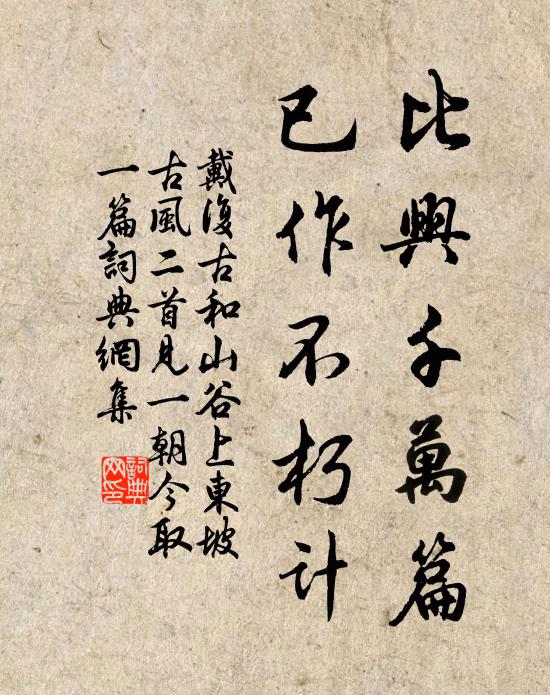 比興千萬篇
已作不朽計
戴復古和山谷上東坡
古風二首見一朝今取
一篇詞典網集
詞典
网印